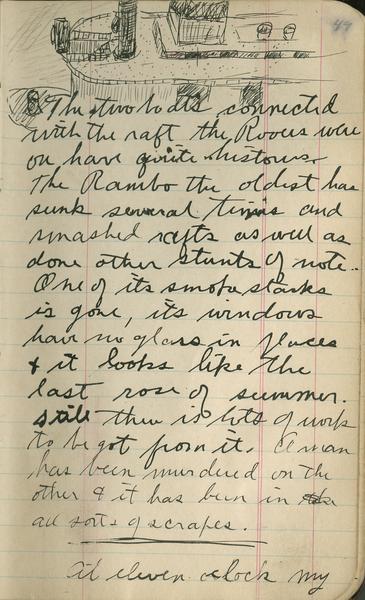 47
The two boats connected
with the raft the Rovers were
on have quite histories.
The Rambo the oldest has
sunk several times and
smashed rafts as well as
done other stunts of note..
One of its smoke stacks
is gone, its windows
have no glass in places
& it looks like the
last rose of summer.
still there is lots of work
to be got from it. A man
has been murdered on the
other & it has been in
all sorts of scrapes.
At eleven oclock my